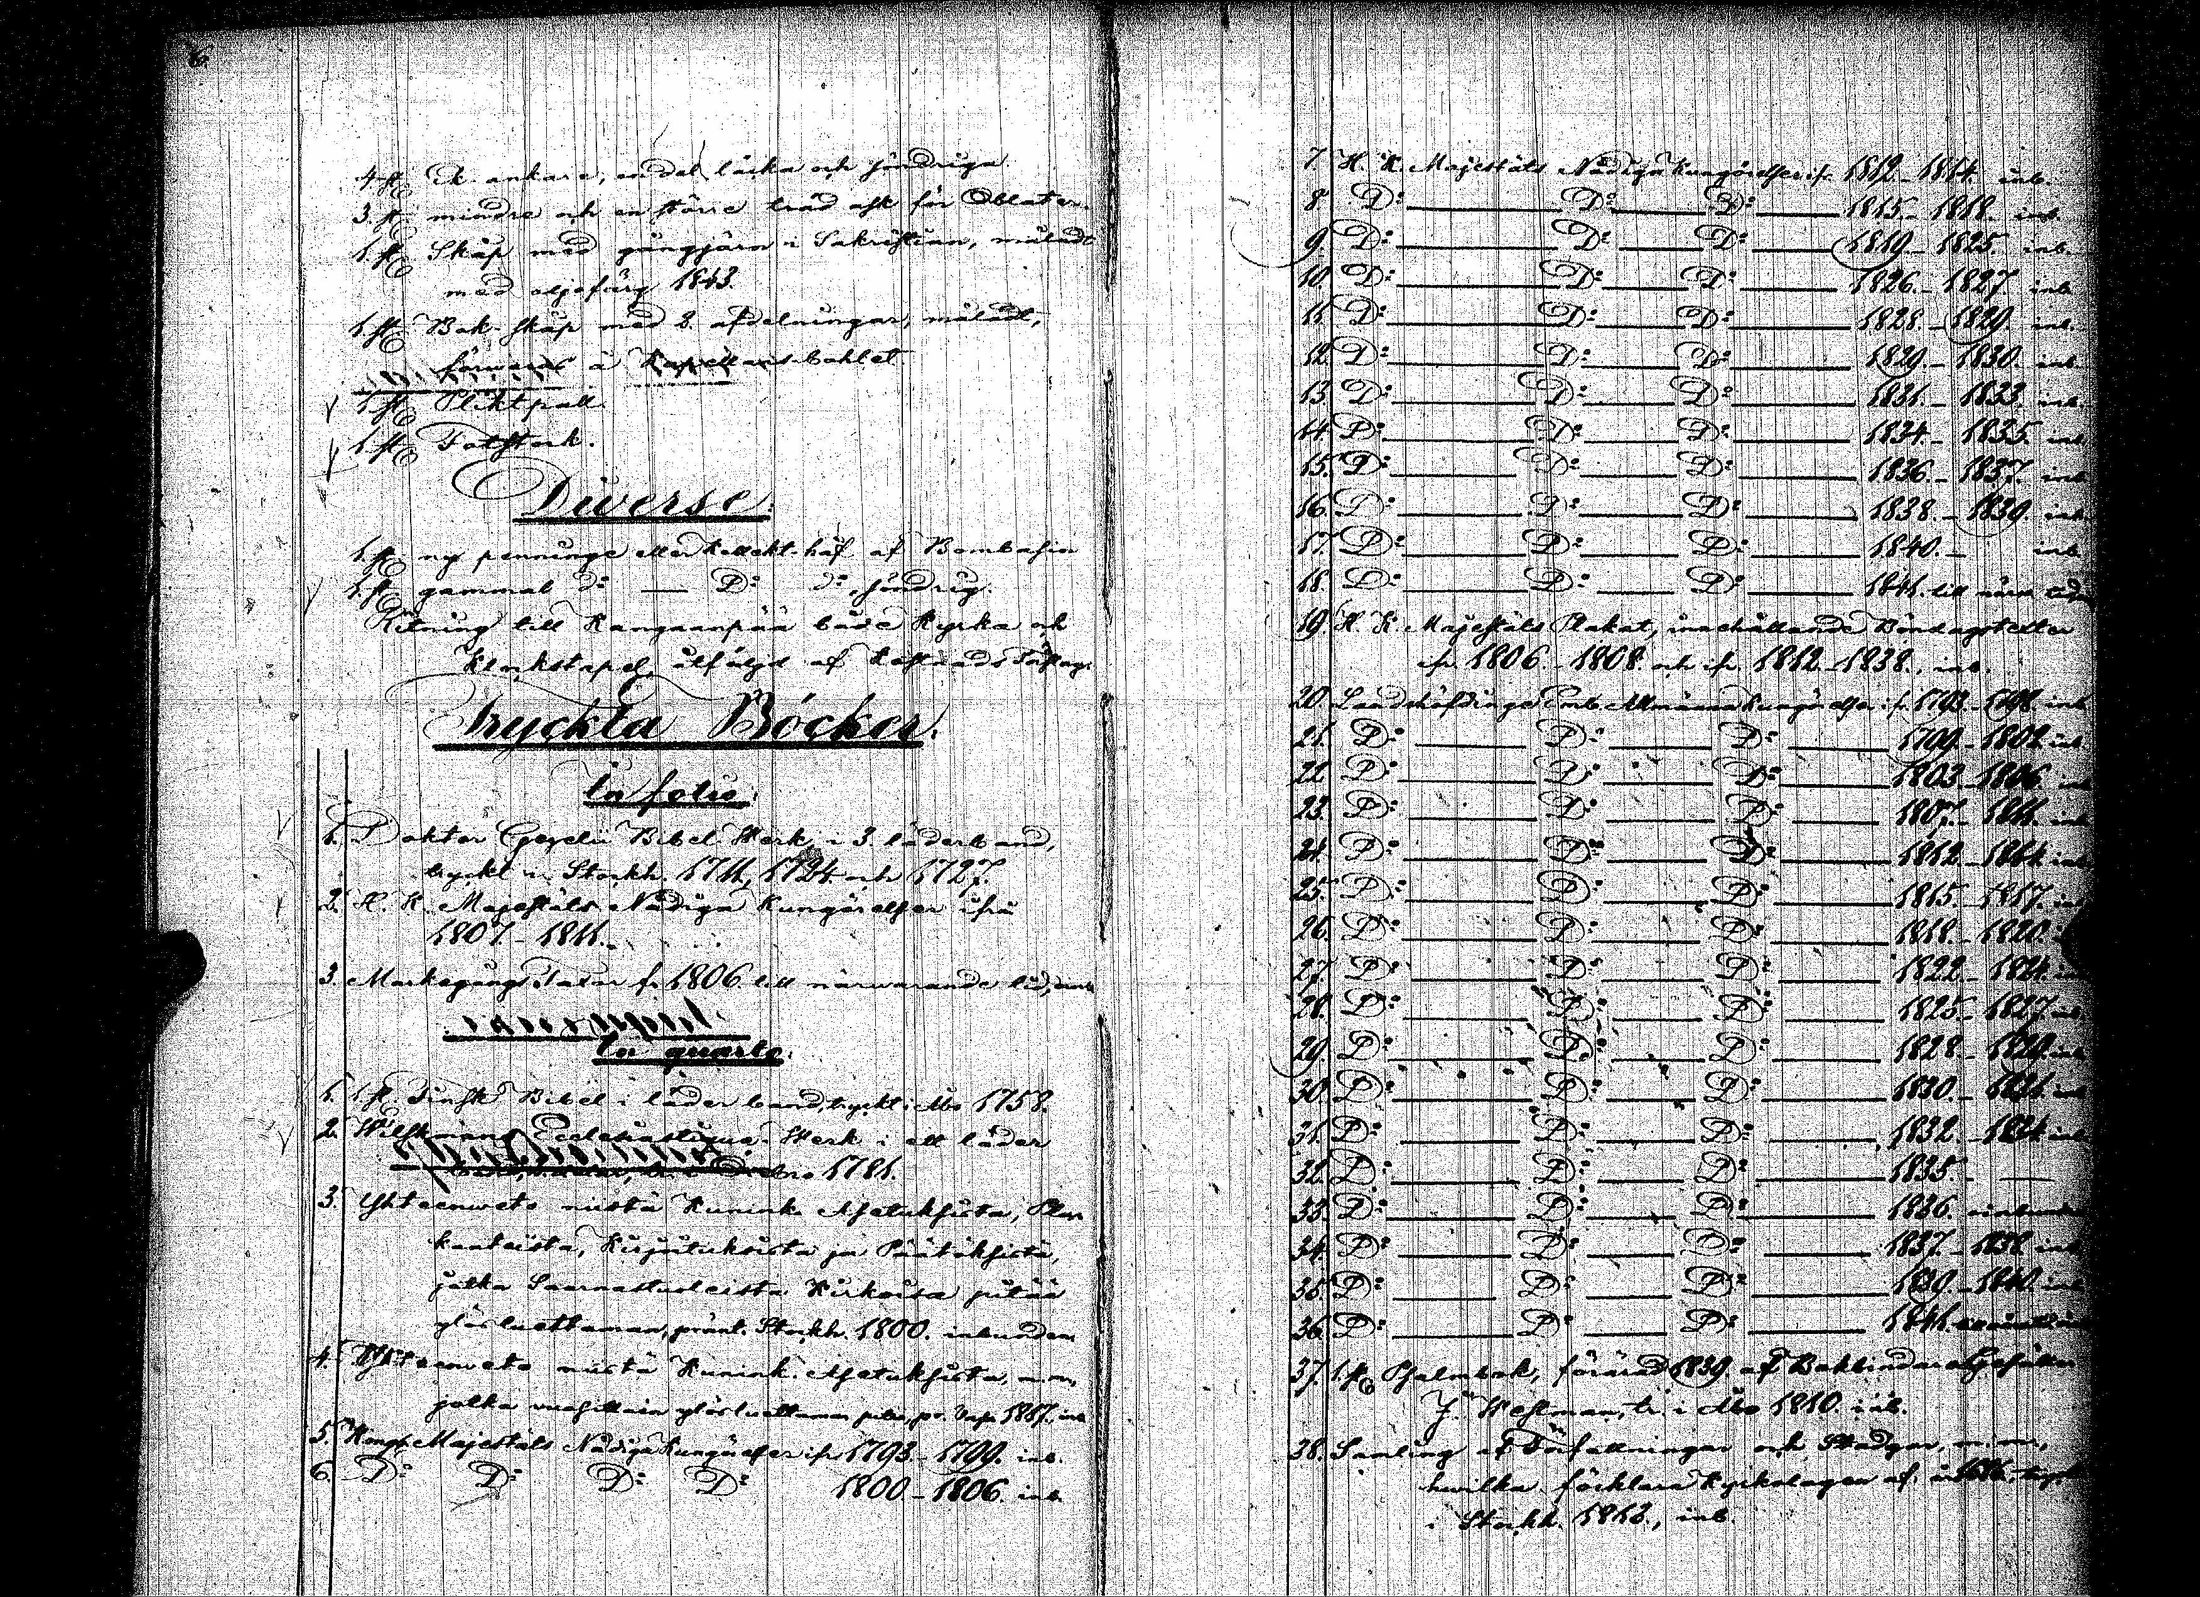 6.
4 st. Ek ankare, en del läcka och söndriga
3. st. mindre och en större träd ask för Oblater.
1. st. Skåp med gångjärn i Sakristian, måladt
med oljefärg 1843.
1. st. Bok-skåp med 2. afdelningar, måladt,
förwaras å Kapellansbohlet
1. st. Pliktpall.
1. st. Fotstock.
Diverse.
1. st. ny penninge eller Kollekt-håf af Bombasin
1. st. gammal d:o — D:o d:o, söndrig.
Ritning till Kangaanpää både Kyrka och
Klockstapel, åtföljd af Kostnads Förslag.
Tryckta Böcker.
In folio.
1. Doktor Gezelii Bibel Werk i 3. läderband,
tryckt i Stockh. 1711, 1724 och 1727.
2. H. K. Majestäts Nådiga Kungörelser ifrån
1807–1811.
3. Markegångs Taxor fr. 1806 till närwarande tid,
In quarto.
1. 1 st. Finsk Bibel i läder band, tryckt i Åbo 1758.
2. Wilskmans Ecclesiastique Werk i ett läder
1781.
3. Yhteenweto niistä Kunink. Asetuksista, Pla-
kaateista, Kirjoituksista ja Päätöksistä,
jotka Saarnastuoleista Kirkoisa pitää
ylösluettaman, pränt. Stockh. 1800. inbunden
4. Yhteenweto niistä Kunink. Asetuksista, m.m,
jotka wuosittain ylösluettaman pitää, pr. 1817. inb
5. Kongl. Majestäts Nådiga Kungörelser ifr. 1793–1799. inb.
6. D:o D:o D:o D:o 1800–1806. inb.
7. H. K. Majestäts Nådiga Kungörelser ifr. 1812–1814. inb.
8. D:o D:o D:o 1815–1818. inb.
9. D:o D:o D:o 1819–1825. inb.
10. D:o D:o D:o 1826–1827 inb.
11. D:o D:o D:o 1828–1829. inb.
12. D:o D:o D:o 1829–1830. inb.
13. D:o D:o D:o 1831–1833. inb.
14. D:o D:o D:o 1834–1835. inb
15. D:o D:o D:o 1836–1837. inb
16. D:o D:o D:o 1838–1839. inb.
17. D:o D:o D:o 1840.– inb.
18. D:o D:o D:o 1841. till närw. tid
19. H. K. Majestäts Plakat, innehållande Böndagstexter
ifr. 1806.–1808. och ifr. 1812–1838., inb.
20. Landshöfdinge Emb. Allmänna Kungörelser ifr. 1793–1798. inb
21. D:o D:o D:o 1799–1802 inb.
22 D:o D:o D:o 1803–1806. inb
23. D:o D:o D:o 1807–1811. inb.
24. D:o D:o D:o 1812–1814. inb.
25. D:o D:o D:o 1815–1817. inb
26. D:o D:o D:o 1818.–1820.
27. D:o D:o D:o 1822–1824. inb
28. D:o D:o D:o 1825–1827 inb.
29. D:o D:o D:o 1828–1829. inb
30. D:o D:o D:o 1830.–1831. inb
31. D:o D:o D:o 1832–1834 inb.
32. D:o D:o D:o 1835.
33. D:o D:o D:o 1836. oinbunden
34. D:o D:o D:o 1837.–1838. inb
35. D:o D:o D:o 1839–1840. inb.
36. D:o D:o D:o 1841.
37. 1. st. Psalmbok, förärad 1839. af Bokbindare Gesällen
J. Weslman, tr. i Åbo 1810. inb.
38. Samling af Författningar och Stadgar, m.m.,
hwilka förklara Kyrkolagen af år 1686. tryckt
i Stockh. 1813., inb.